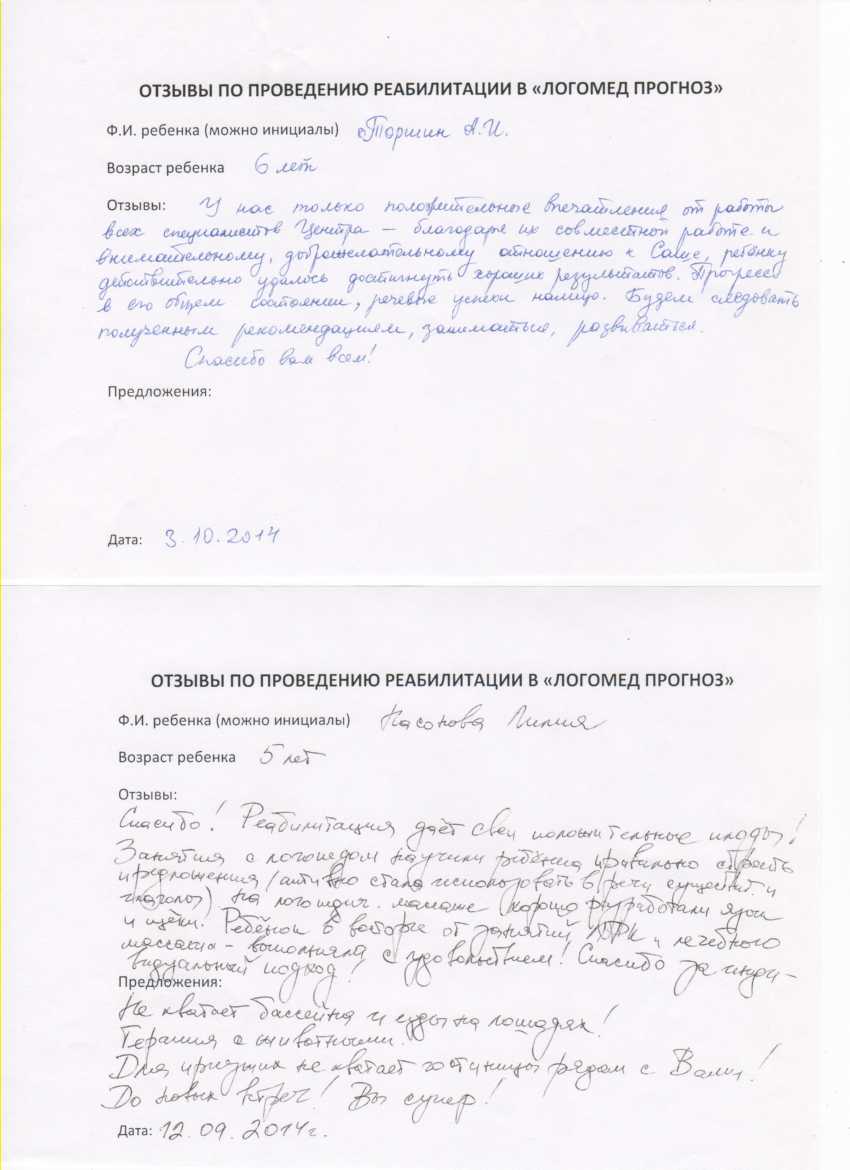 ОТЗЫВЫ ПО ПРОВЕДЕНИЮ РЕАБИЛИТАЦИИ В «ЛОГОМЕД ПРОГНОЗ»
Ф.И. ребенка (можно инициалы) Торшин А.И.
Возраст ребенка 6 лет
Отзывы: У нас только положительные впечатления от работы
всех специалистов Центра – благодаря их совместной работе и
внимательному, доброжелательному отношению к Саше, ребёнку
действительно удалось достигнуть хороших результатов. Прогресс
в его общем состоянии, речевые успехи налицо. Будем следовать
полученным рекомендациям, заниматься, развиваться.
Спасибо вам всем!
Предложения:
Дата: 3.10.2014
ОТЗЫВЫ ПО ПРОВЕДЕНИЮ РЕАБИЛИТАЦИИ В «ЛОГОМЕД ПРОГНОЗ»
Ф.И. ребенка (можно инициалы) Насонова Лилия
Возраст ребенка 5 лет
Отзывы:
Спасибо! Реабилитация даёт свои положительные плоды!
Занятия с логопедом научили ребёнка правильно строить
предложения (активно стала использовать в речи существит. и
глаголы) на логопедич. массаже хорошо разработали язык
и щёки. Ребёнок в восторге от занятий ЛФК и лечебного
массажа – выполняла с удовольствием! Спасибо за инди-
видуальный подход!
Предложения:
Не хватает бассейна и езды на лошадях!
Терапия с животными.
Для приезжих не хватает гостиницы рядом с Вами!
До новых встреч! Вы супер!
Дата: 12.09.2014г.